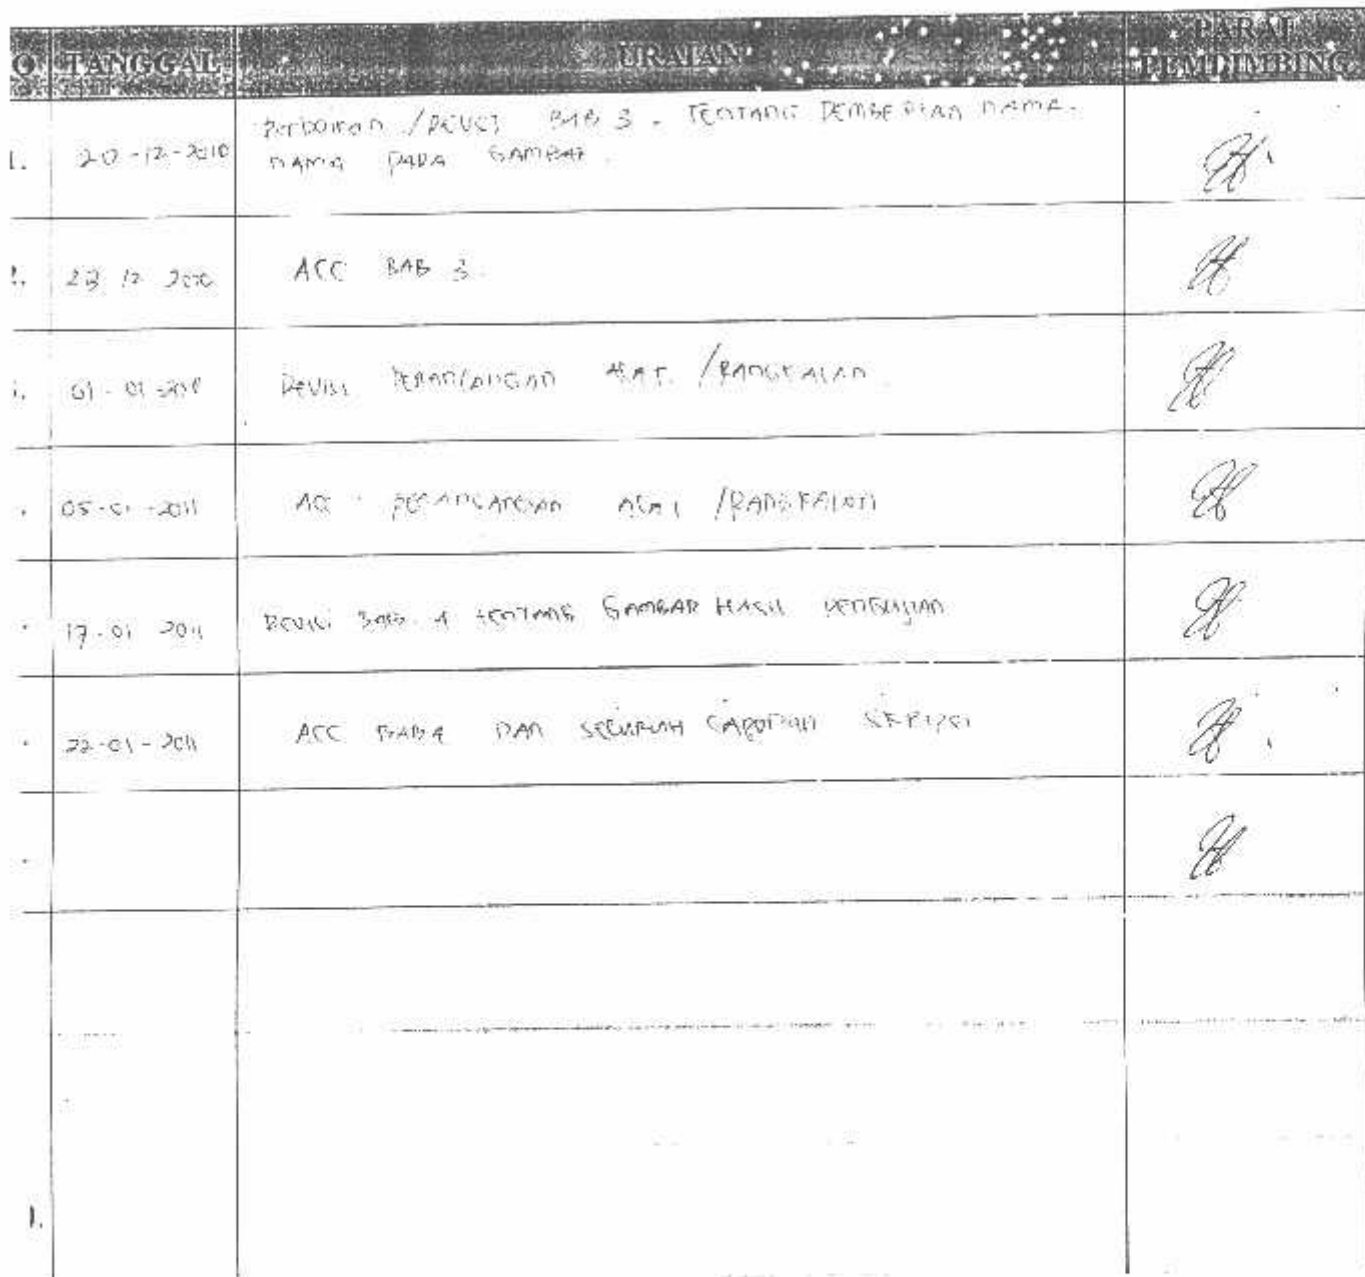 O TANGGAL URAIAN PARAF PEMBIMBING
1. 20-12-2010 Perbaikan / REVISI BAB 3 - TENTANG PEMBERIAN NAMA-
NAMA PADA GAMBAR.
2. 23 12 2010 ACC BAB 3.
01-01- REVISI PERANCANGAN ALAT / RANGKAIAN
05-01-2011 ACC PERANCANGAN ALAT / RANGKAIAN
17-01 2011 REVISI BAB 4 TENTANG GAMBAR HASIL PENGUJIAN
22-01-2011 ACC BAB 4 DAN SELURUH LAPORAN SKRIPSI
1.